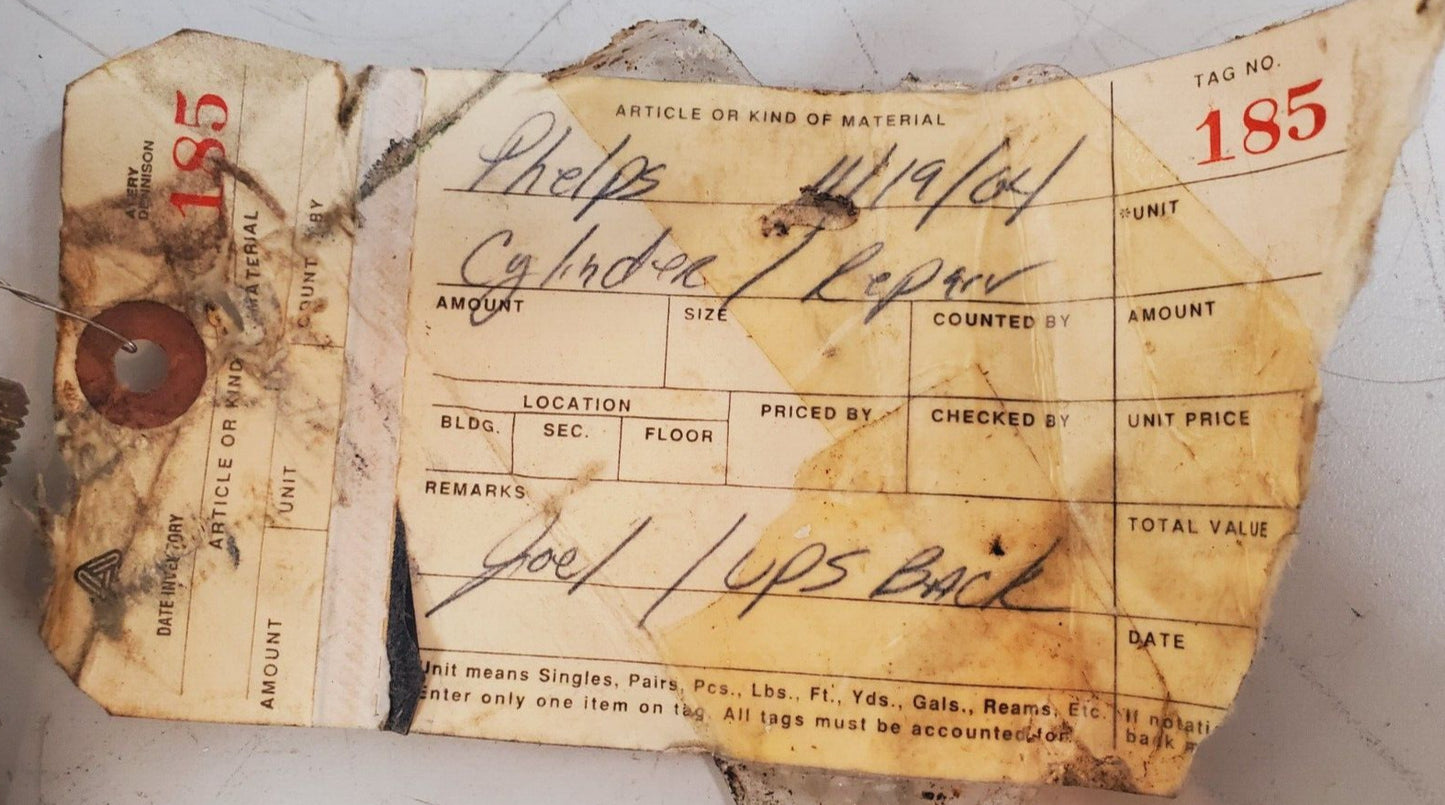 ARTICLE OR KIND OF MATERIAL
TAG NO.
185
Phelps 11/19/04
*UNIT
Cylinder / Repair
AMOUNT SIZE COUNTED BY AMOUNT
LOCATION
BLDG. SEC. FLOOR PRICED BY CHECKED BY UNIT PRICE
REMARKS
TOTAL VALUE
Joel / UPS BACK
DATE
Unit means Singles, Pairs, Pcs., Lbs., Ft., Yds., Gals., Reams, Etc.
Enter only one item on tag. All tags must be accounted for.
If notati
back
185
AVERY
DENNISON
DATE INVENTORY
ARTICLE OR KIND MATERIAL
AMOUNT UNIT COUNT BY